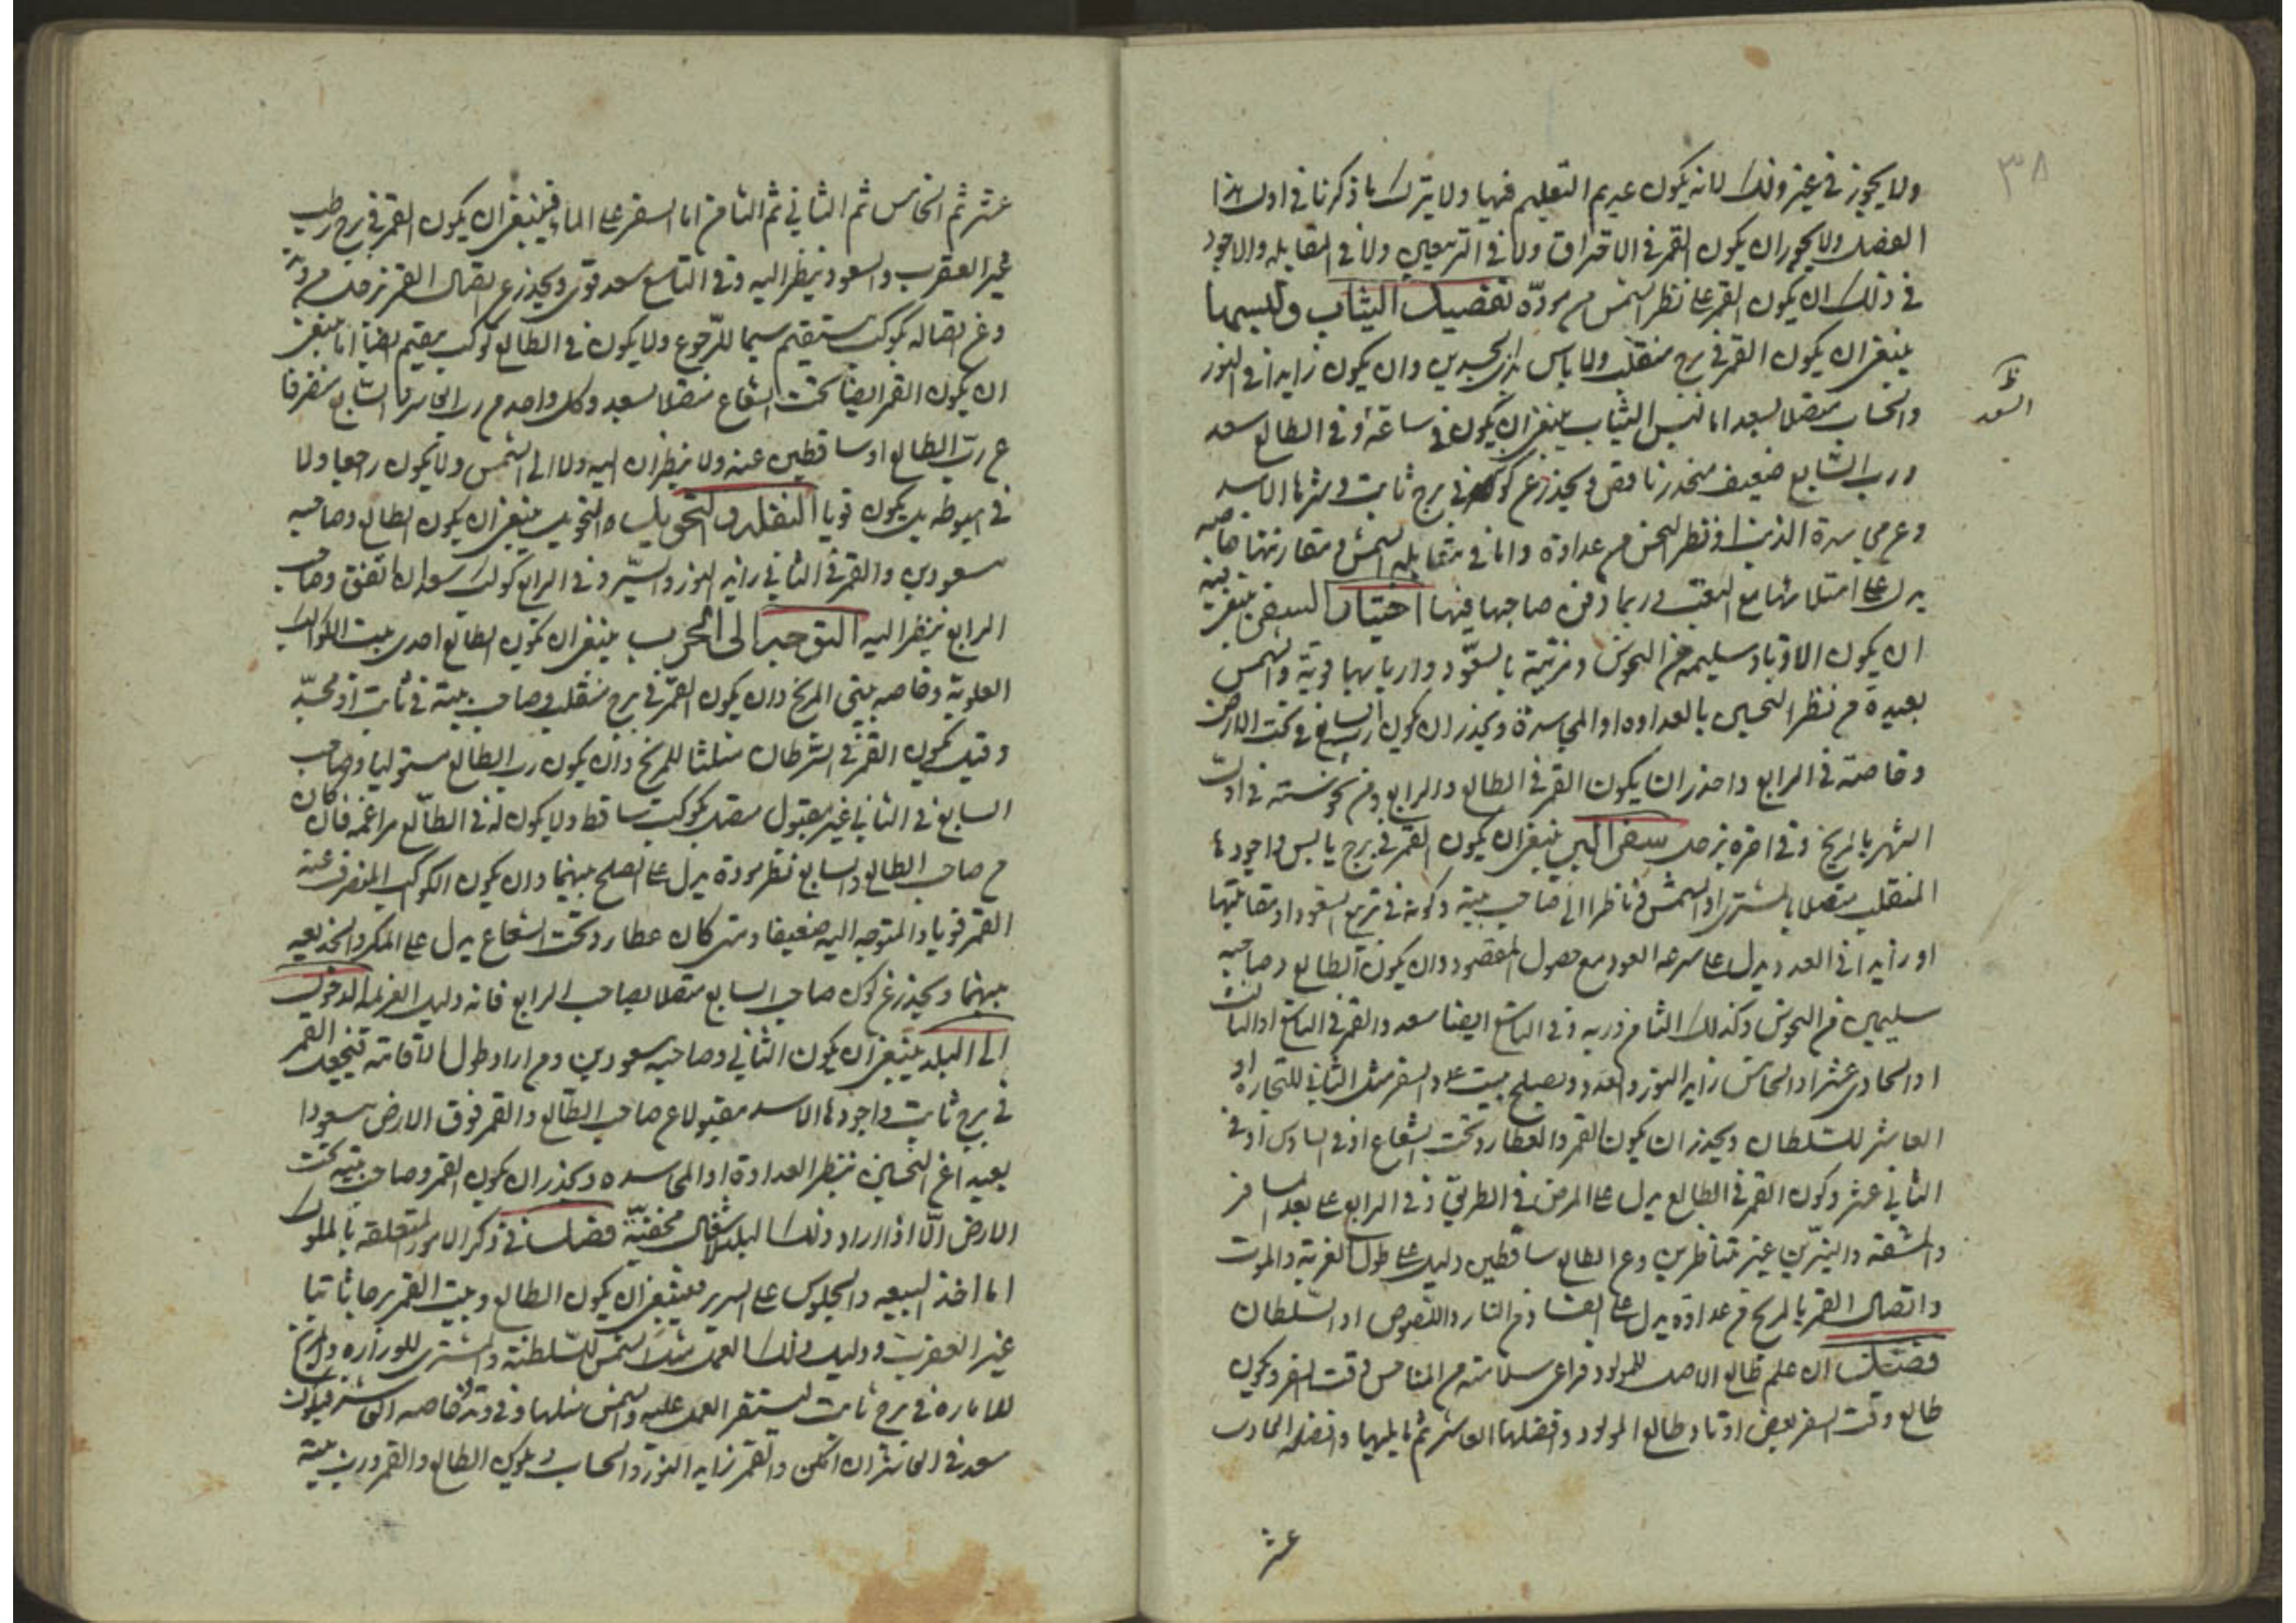 ٣٨
ولا يجوز في غير ذلك لانه يكون عديم التعليم فيها ولا يترك ما ذكرنا في اول هذا
الفصل ولا يجوز ان يكون القمر في الاحتراق ولا في التربيعين ولا في المقابله والاجود
في ذلك ان يكون القمر على نظر الشمس من مودّة تفضيل الثياب ولبسها
ينبغي ان يكون القمر في برج منقلب ولا باس بذي الجسدين وان يكون زايدا في النور
والحساب متصلا بسعد اما لبس الثياب ينبغي ان يكون في ساعة او في الطالع سعد
ظ السعد
ورب السابع ضعيف منحدر ناقص ويحذر عن كون في برج ثابت وشرها الاسد
وعن مجاسدة الذنب او نظر النحس من عداوة واما في مقابله الشمس ومقارنتها خاصه
يدل على امتلائها مع التعب وربما دفن صاحبها فيها اختيار السفر ينبغي فيه
ان يكون الاوتاد سليمه من النحوس ومزينة بالسعود واربابها قوية والشمس
بعيدة من نظر النحسين بالعداوه او المجاسدة ويحذر ان يكون رب السابع في تحت الارض
وخاصة في الرابع واحذر ان يكون القمر في الطالع والرابع ومن نحوسته في اول
الشهر بالمريخ وفي اخره بزحل سفر البر ينبغي ان يكون القمر في برج يابس واجودها
المنقلب متصلا بالمشتري او الشمس ناظرا الى صاحب بيته وكونه في تربيع السعود او مقابلتها
او زايدا في العدد يدل على سرعه العود مع حصول المقصود وان يكون الطالع وصاحبه
سليمين من النحوس وكذلك الثامن وربه وفي التاسع ايضا سعد والقمر في التاسع او الثالث
او الحادي عشر او الخامس زايد النور والعدد ويصلح بيت السفر مثل الثاني للتجاره او
العاشر للسّلطان ويحذر ان يكون القمر والعطارد تحت الشعاع او في السادس او في
الثاني عشر وكون القمر في الطالع يدل على المرض في الطريق وفي الرابع على بعد السفر
والمشقة والنيّرين غير متناظرين وعن الطالع ساقطين دليل على طول الغربة والموت
واتصال القمر بالمريخ من عداوة يدل على الفساد من النار واللّصوص او السّلطان
فصل ان علم طالع الاصل للمولود فراعى سلامته من المناحس وقت السفر ويكون
طالع وقت السفر بعض اوتاد طالع المولود وافضلها العاشر ثم ما يليها وافضله الحادي
عشر
عشر ثم الخامس ثم الثاني ثم الثامن اما السفر على الماء فينبغي ان يكون القمر في برج رطب
غير العقرب والسعود ينظر اليه وفي التاسع سعد قوى ويحذر عن اتصال القمر بزحل من وتد
وعن اتصاله بكوكب مستقيم سيما للرّجوع ولا يكون في الطالع كوكب مقيم
ان يكون القمر ايضا تحت الشعاع متصلا بسعد وكل واحد من رب العاشر والسابع منصرفا
عن ربّ الطالع او ساقطين عنه ولا ينظران اليه ولا الى الشمس ولا يكون راجعا ولا
في هبوطه بل يكون قويا النقله والتحويل التحويل ينبغي ان يكون الطالع وصاحبه
مسعودين والقمر في الثاني زايد النور والسّير وفي الرابع كوكب سعد ان اتفق وصاحب
الرابع ينظر اليه التوجه الى الحرب ينبغي ان يكون الطالع احدى بيت الكواكب
العلوية وخاصه بيتي المريخ وان يكون القمر في برج منقلب وصاحب بيته في ثابت او مجسّد
وقيل يكون القمر في السّرطان مثلثا للمريخ وان يكون رب الطالع مستوليا وصاحب
السابع في الثاني غير مقبول متصل بكوكب ساقط ولا يكون له في الطّالع مزاعمه فان كان
من صاحب الطالع والسابع نظر مودة يدل على الصلح بينهما وان يكون الكوكب المنصرف عنه
القمر قويا والمتوجه اليه ضعيفا ومتى كان عطارد تحت الشعاع يدل على المكر والخديعه
بينهما ويحذر عن كون صاحب السابع متصلا بصاحب الرابع فانه دليل الهزيمه الدخول
الى البلد ينبغي ان يكون الثاني وصاحبه مسعودين ومن اراد طول الاقامة فيجعل القمر
في برج ثابت واجودها الاسد مقبولا عن صاحب الطالع والقمر فوق الارض مسعودا
بعيدا عن النحسين بنظر العداوة او المجاسده ويحذر ان يكون القمر وصاحب بيته تحت
الارض الّا اذا اراد ذلك البلد لاشغال مخفيّة فصل في ذكر الامور المتعلقه بالملوك
اما اخذ البيعه والجلوس على السرير فينبغي ان يكون الطالع وبيت القمر برجا ثابتا
غير العقرب ودليل ذلك العمل مثل الشمس للسّلطنة والمشترى للوزاره والمريخ
للاماره في برج ثابت ليستقر العمل عليه والشمس مثلها وفي وتد خاصه العاشر فيكون
سعد في العاشر ان امكن والقمر زايد النور والحساب ويكون الطالع والقمر ورب بيته